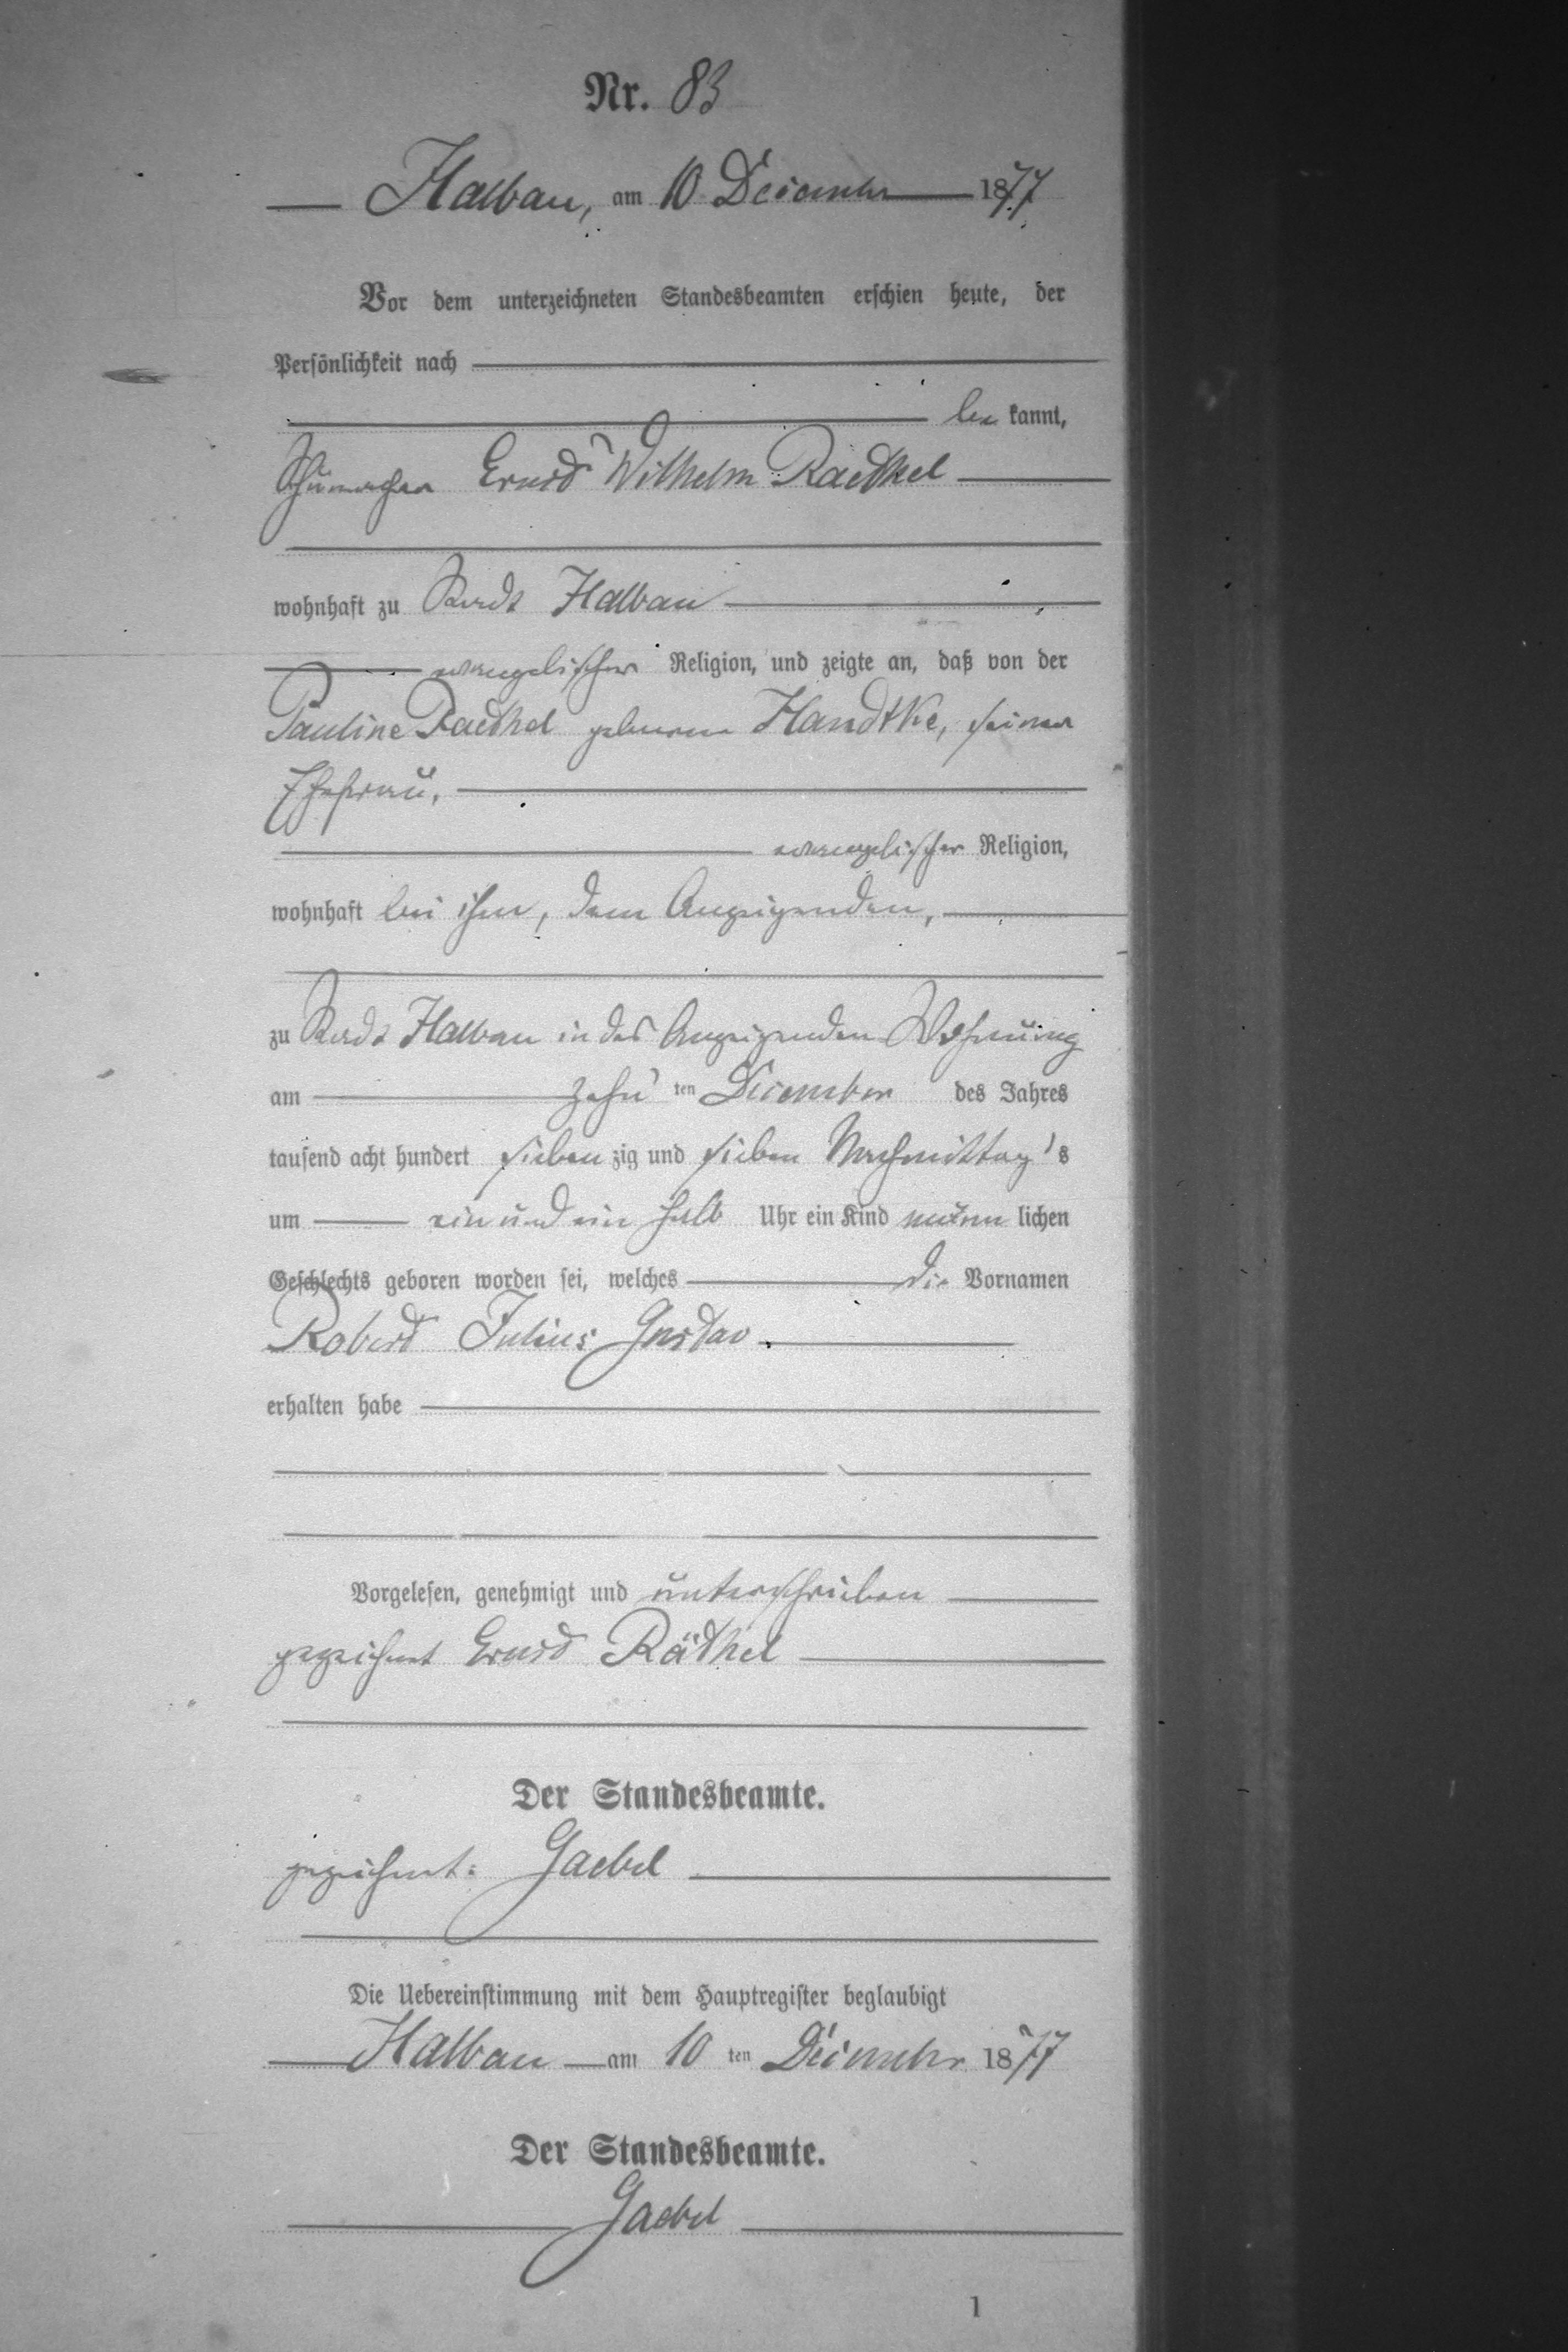 Nr. 83
Halbau, am 10 December 1877
Vor dem unterzeichneten Standesbeamten erschien heute, der
Persönlichkeit nach
be kannt,
Schumacher Ernst Wilhelm Raethel
wohnhaft zu Stadt Halbau
evangelischer Religion, und zeigte an, daß von der
Pauline Raethel geborene Handtke, seiner
Ehefrau,
evangelischer Religion,
wohnhaft bei ihm, dem Anzeigenden,
zu Stadt Halbau in des Anzeigenden Wohnung
am zehn ten December des Jahres
tausend acht hundert sieben zig und sieben Nachmittag s
um ein und ein halb Uhr ein Kind männ lichen
Geschlechts geboren worden sei, welches die Vornamen
Robert Julius Gustav
erhalten habe
Vorgelesen, genehmigt und unterschrieben
gezeichnet Ernst Räthel
Der Standesbeamte.
gezeichnet: Gaebel
Die Uebereinstimmung mit dem Hauptregister beglaubigt
Halbau am 10 ten December 1877
Der Standesbeamte.
Gaebel
1